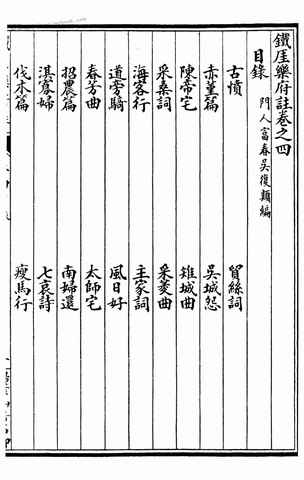 鐵厓樂府註卷之四
門人富春吳復類編
目錄
古憤 貿絲詞
赤堇篇 吳城怨
陳帝宅 雉城曲
采桑詞 采菱曲
海客行 主家詞
道旁騎 風日好
春芳曲 太師宅
招農篇 南婦還
淇寡婦 七哀詩
伐木篇 瘦馬行